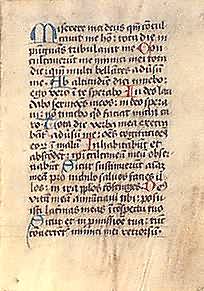 Miserere mei deus qm̄ cōcul
cauit me homo: tota die im
pugnans tribulauit me Con
culcauerunt me inimici mei tota
die: qm̄ multi bellātes aduſū
me Ab altitudīe diei timebo:
ego vero ī te sperabo In deo lau
dabo sermones meos: in deo spera
ui: nō timebo qd faciat michi ca
ro Tota die verba mea execra
bāt̄: adūsū me: ōēs cogitatōnes
eoꝝ ī malū Inhabitabūt et
abscōdēt: ip̄i calcaneū meū obſer
uabūt Sicut sustinuerūt aīaꝫ
meā pro nichilo saluos facies il
los: in ira pplos cōfringes Ds̄
vitā meā ānunciaui tibi: po
suisti lacrimas meas ī cōspectu tuo
Sicut et in pmissiōe tua: tūc
cōuertēt̄ inimici mei retrorsū